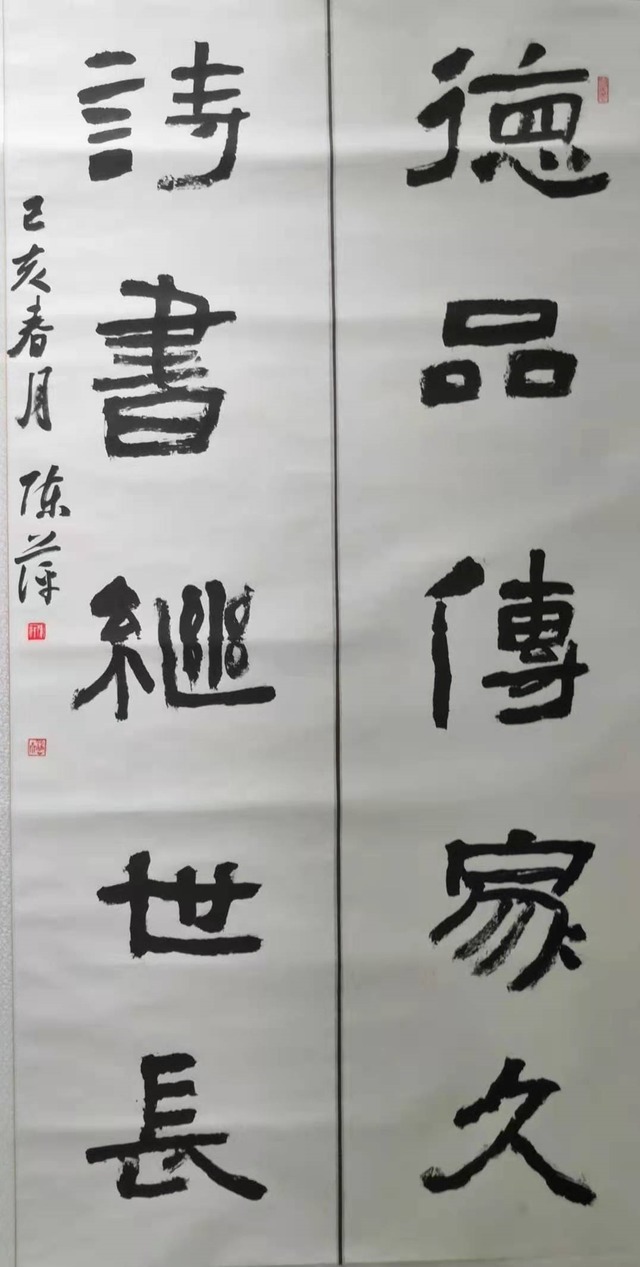 德品傳家久
詩書繼世長
己亥春月 陈萍